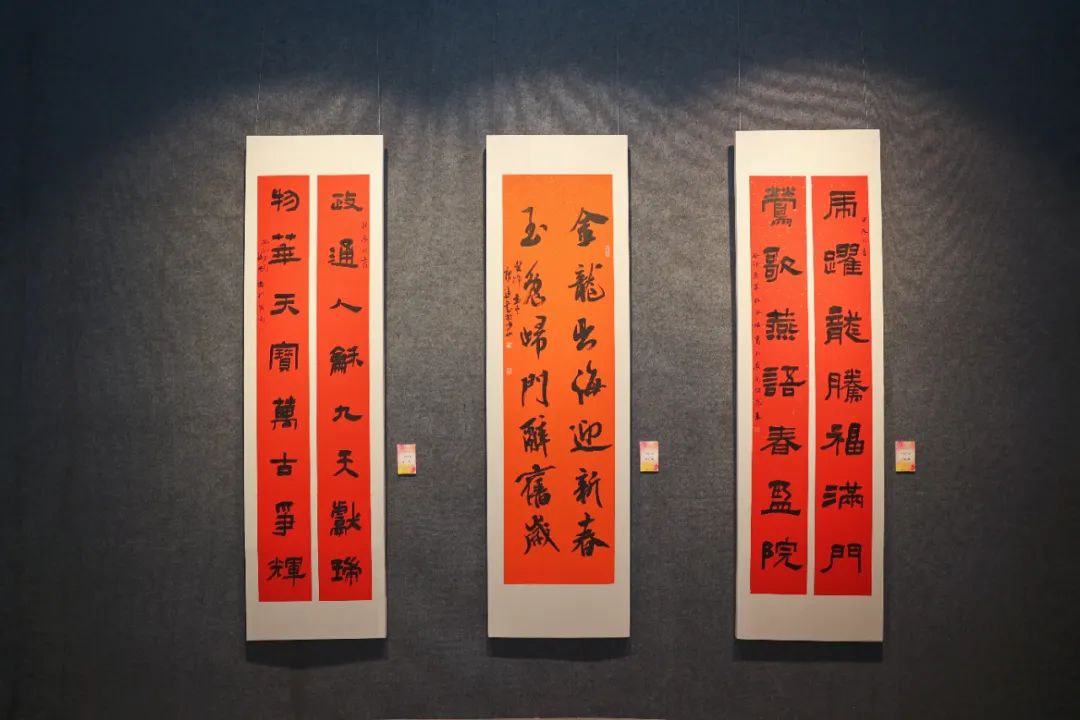 政通人龢九天獻瑞
物華天寶萬古爭輝
金龍出海迎新春
玉兔歸門辭舊歲
虎躍龍騰福滿門
鶯歌燕語春盈院